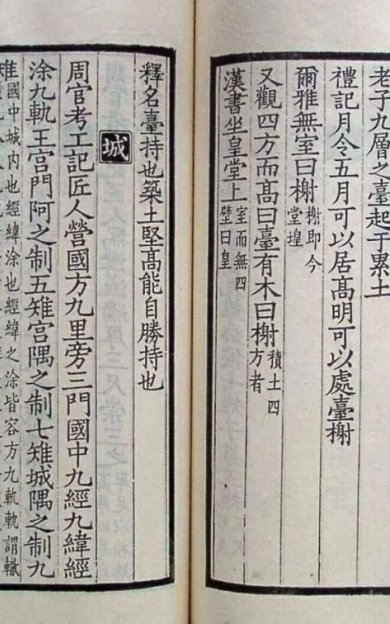 老子九層之臺起于累土
禮記月令五月可以居髙明可以處臺榭
爾雅無室曰榭榭即今堂堭
又觀四方而髙曰臺有木曰榭積土四方者
漢書坐皇堂上室而無四壁曰皇
釋名臺持也築土堅髙能自勝持也
城
周官考工記匠人營國方九里旁三門國中九經九緯經
涂九軌王宫門阿之制五雉宫隅之制七雉城隅之制九
雉國中城内也經緯涂也經緯之涂皆容方九軌軌謂轍